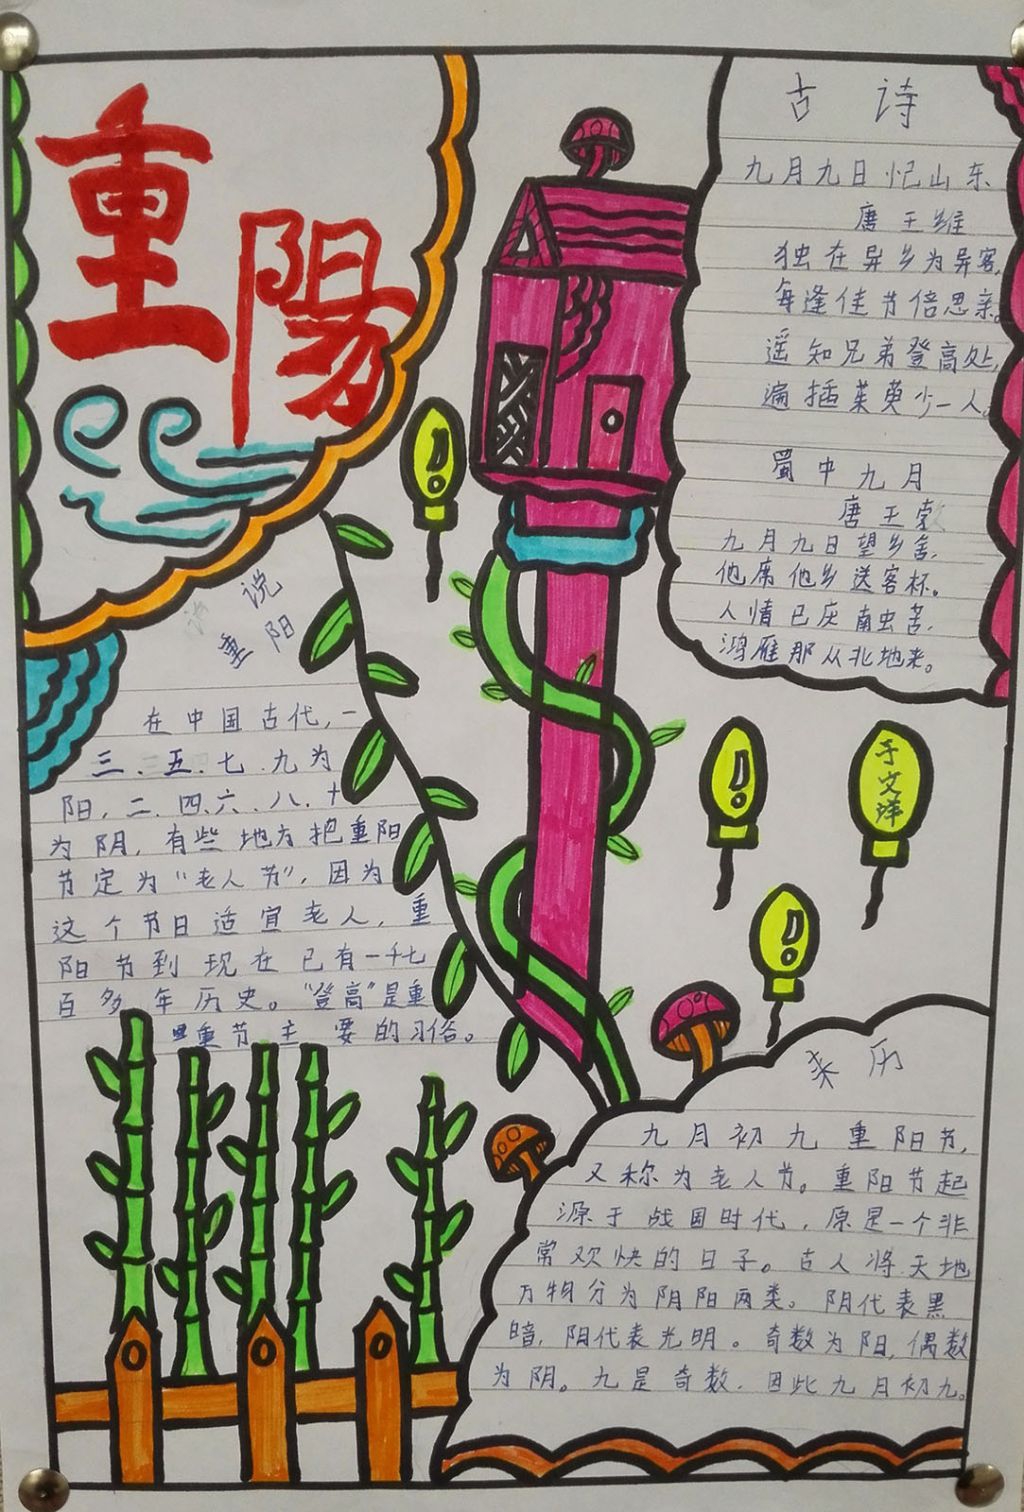 重陽
古诗
九月九日忆山东
唐 王维
独在异乡为异客,
每逢佳节倍思亲。
遥知兄弟登高处,
遍插茱萸少一人。
蜀中九月
唐 王勃
九月九日望乡台,
他席他乡送客杯。
人情已厌南中苦,
鸿雁那从北地来。
说
重阳
在中国古代,一
三、五、七、九为
阳,二、四、六、八、十
为阴,有些地方把重阳
节定为“老人节”,因为
这个节日适宜老人,重
阳节到现在已有一千七
百多年历史。“登高”是重
重节主要的习俗。
于文洋
来历
九月初九重阳节,
又称为老人节。重阳节起
源于战国时代,原是一个非
常欢快的日子。古人将天地
万物分为阴阳两类。阴代表黑
暗,阳代表光明。奇数为阳,偶数
为阴。九是奇数,因此九月初九。